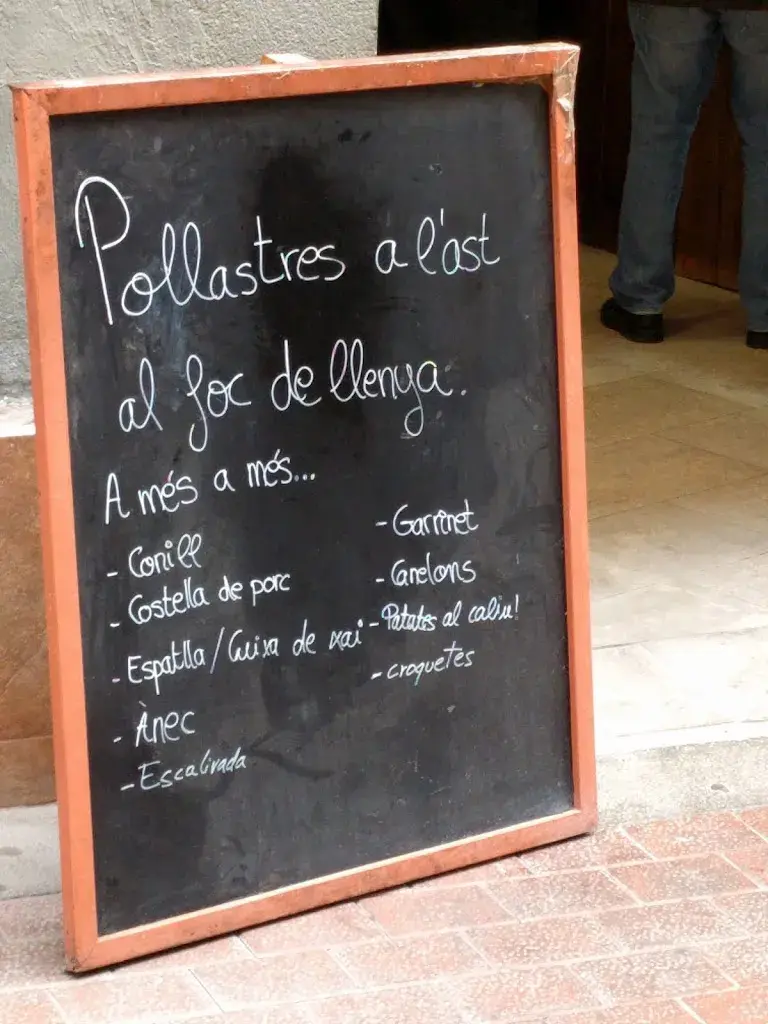 Pollastres a l'ast
al foc de llenya.
A més a més...
- Conill
- Costella de porc
- Espatlla / Cuixa de xai
- Ànec
- Escalivada
- Garrinet
- Canelons
- Patates al caliu!
- croquetes